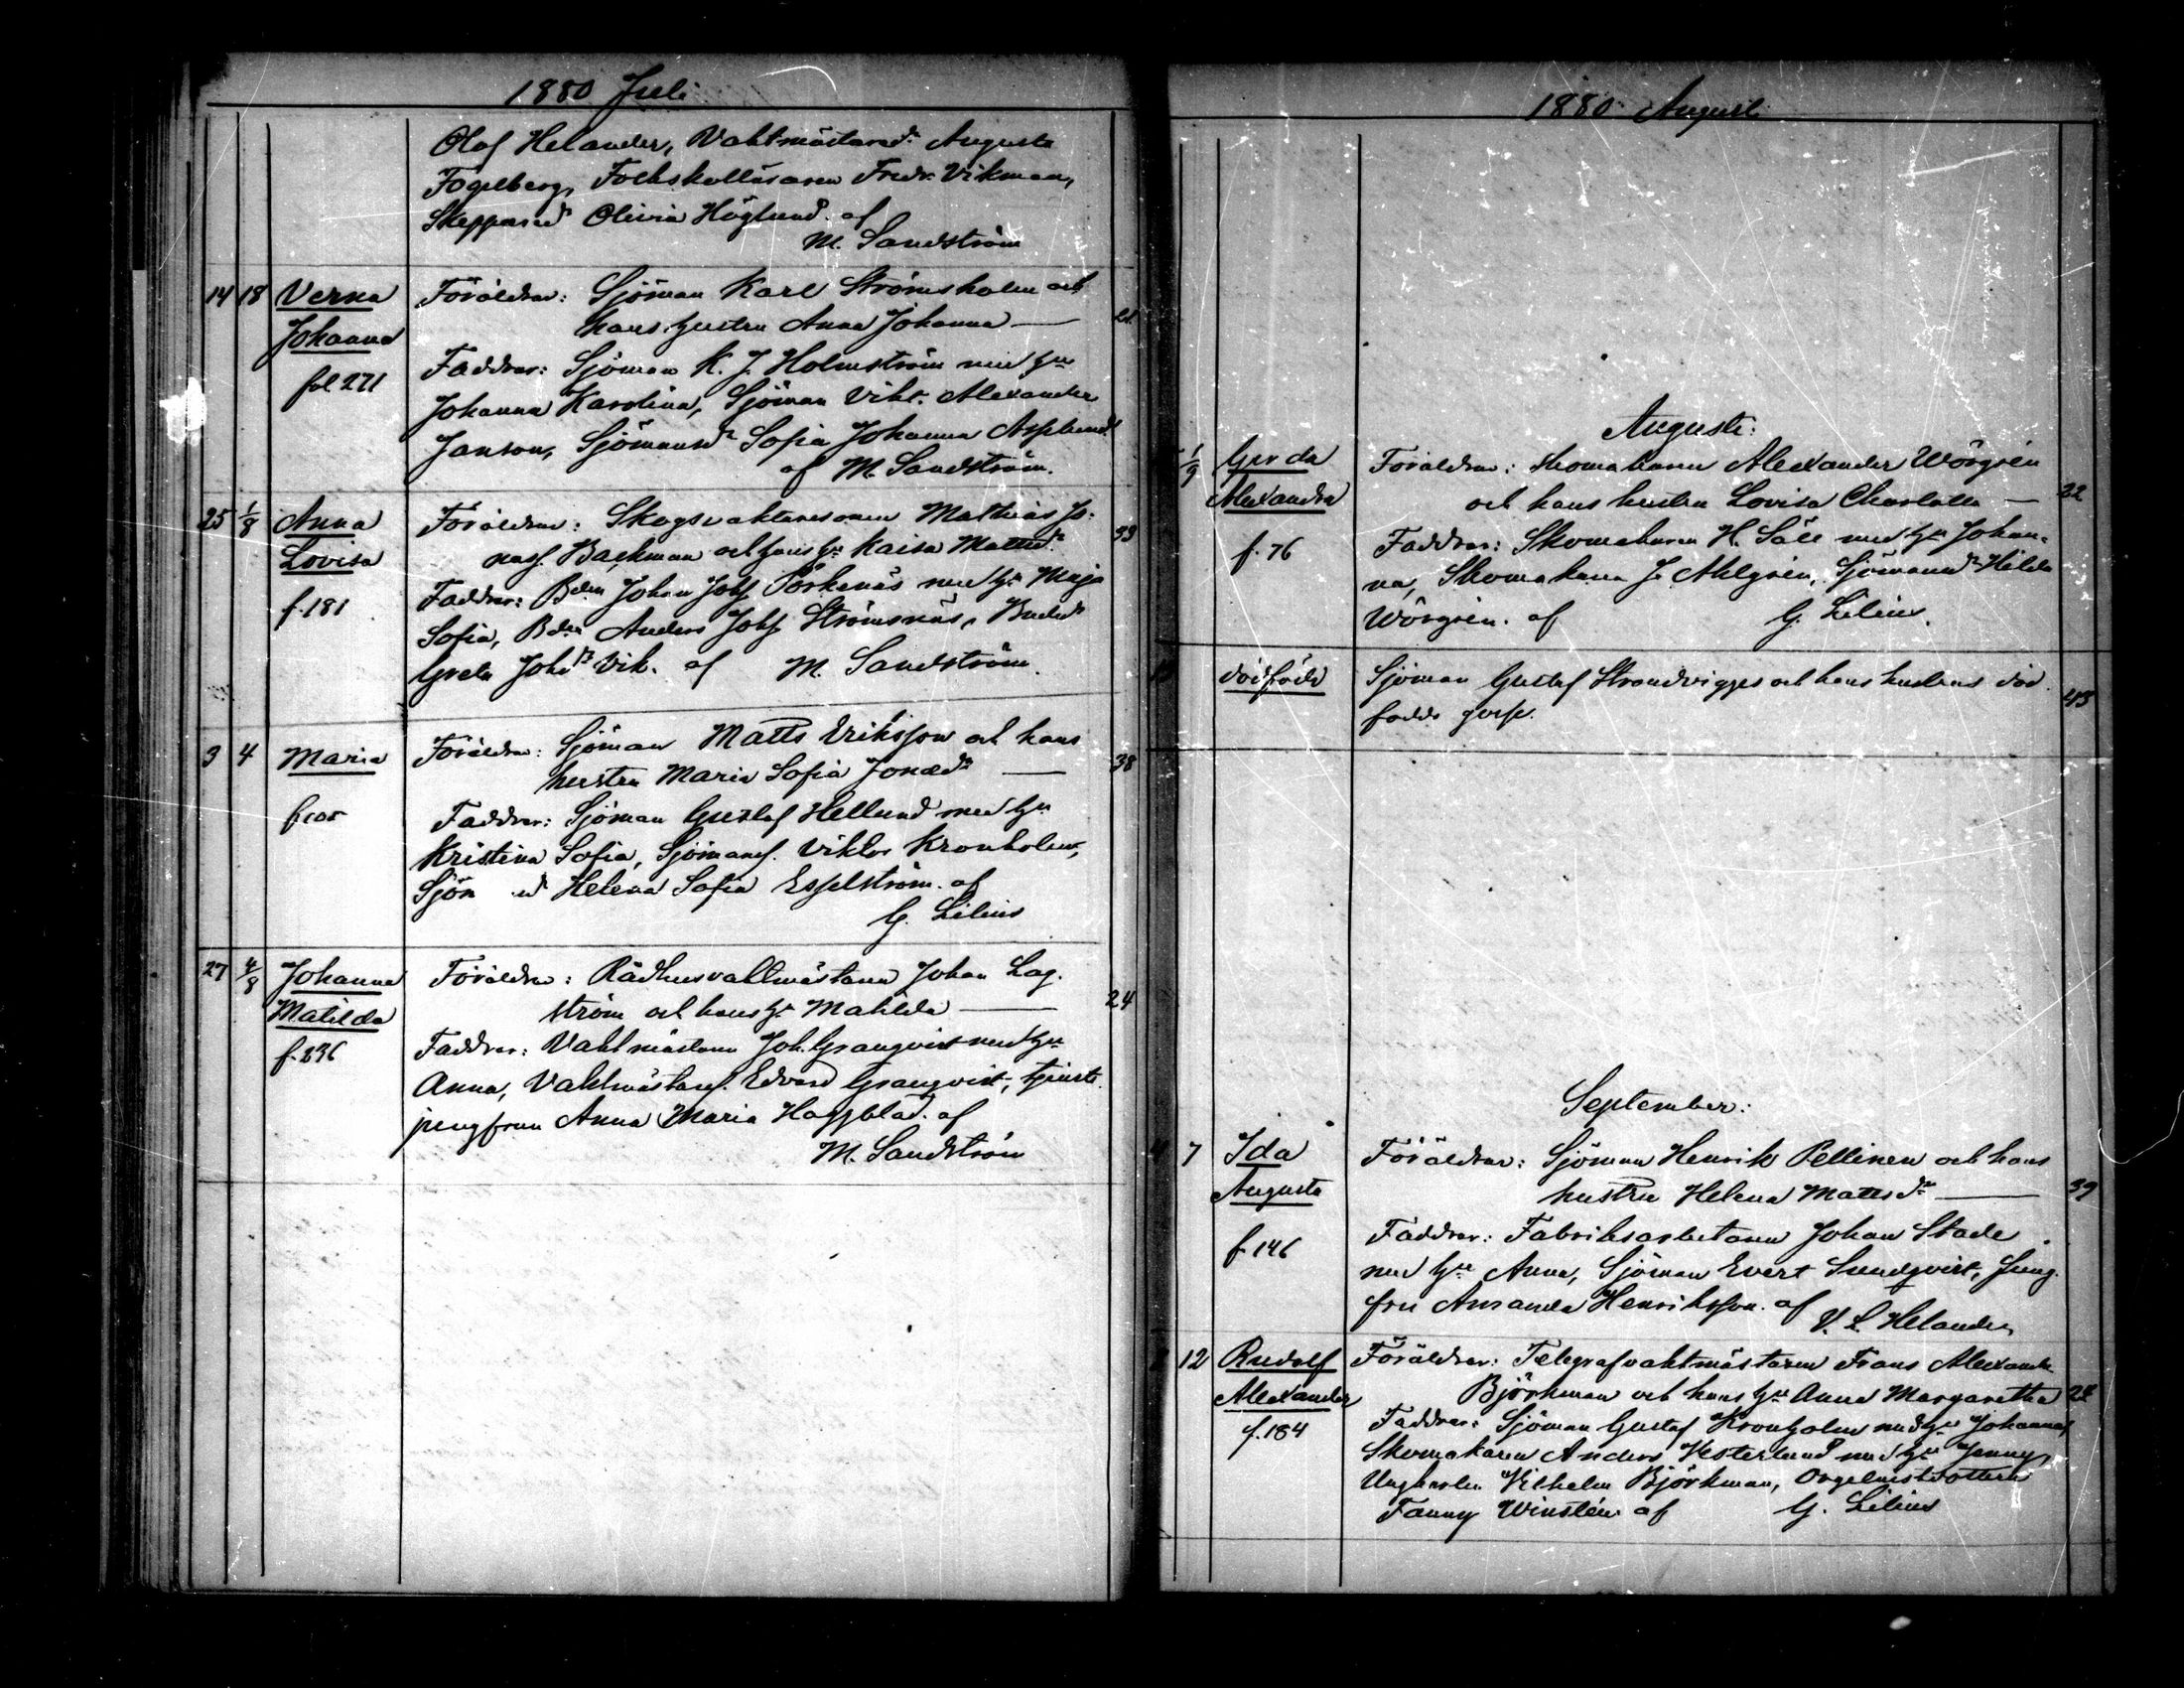 1880 Juli
Olof Helander, Vaktmästared:r Augusta
Fogelberg, Folkskolläraren Fredr. Vikman,
Skeppared:r Olivia Höglund. af
M. Sandström
14 18 Verna Föräldrar: Sjöman Karl Strömsholm och
Johanna hans hustru Anna Johanna — 21
fol. 271 Faddrar: Sjöman K. J. Holmström med hu
Johanna Karolina, Sjöman Vikt. Alexander
Janson, Sjömansd:r Sofia Johanna Asplund
af M. Sandström.
25 1/8 Anna Föräldrar: Skogsvaktaresonen Mathias Jo-
Lovisa nass. Backman och hans hu Kaisa Mattsd:r 33
f. 181 Faddrar: Bden Johan Johss Pörkenäs med hu Maja
Sofia, Bden Anders Johss Strömsnäs, Bonded:r
Greta Johsd:r Vik. af M. Sandström.
3 4 Maria Föräldrar: Sjöman Matts Eriksson och hans
hustru Maria Sofia Jonæd:r — 38
Faddrar: Sjöman Gustaf Hellund med hu
Kristina Sofia, Sjömans. Viktor Kronholm,
Sjön d Helena Sofia Esselström. af
G. Lilius
27 4/8 Johanna Föräldrar: Rådhusvaktmästaren Johan Lag-
Matilda ström och hans hu Matilda — 24
f. 236 Faddrar: Vaktmästaren Joh. Granqvist med hu
Anna, Vaktmästares. Edvard Granqvist, tjenste-
jungfrun Anna Maria Haggblad. af
M. Sandström
1880 Augusti
Augusti:
1/9 Gerda Föräldrar: Skomakaren Alexander Wörgren
Alexandra och hans hustru Lovisa Charlotta — 32
f. 76 Faddrar: Skomakaren H. Säll med hu Johan-
na, Skomakaren J. Ahlgren, Sjömansd:r Hilda
Wörgren. af G. Lilius.
dödfödd Sjöman Gustaf Strandvigges och hans hustrus död- 43
födda gosse.
September:
4 7 Ida Föräldrar: Sjöman Henrik Pellinen och hans
Augusta hustru Helena Mattsd:r — 39
f. 146 Faddrar: Fabriksarbetaren Johan Stade
med hu Anna, Sjöman Evert Sundqvist, Jung-
fru Amanda Henriksson. af V. L. Helander
12 Rudolf Föräldrar: Telegrafvaktmästaren Frans Alexander
Alexander Björkman och hans hu Anna Margaretha 24
f. 184 Faddrar: Sjöman Gustaf Kronholm med hu Johanna,
Skomakaren Anders Vesterlund med hu Jenny,
Ungkarlen Vilhelm Björkman, Orgelnistdottern
Fanny Winstén. af G. Lilius